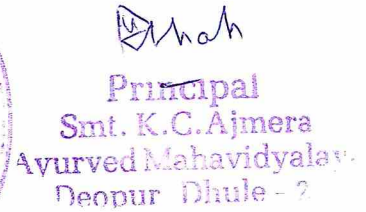 Principal
Smt. K.C.Ajmera
Ayurved Mahavidyalay.
Deopur Dhule - 2